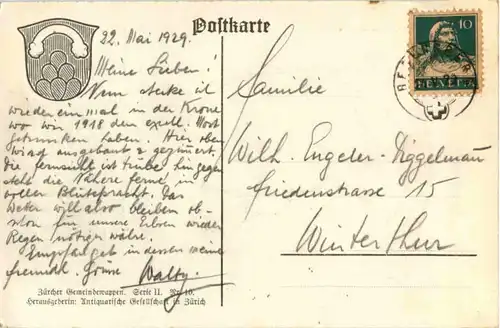 Postkarte
22. Mai 1929.
Meine Lieben!
Nun stecke ich
wieder einmal in der Krone
wo wir 1918 den exell. Most
getrunken haben. Hier oben
wird ausgebaut &
Die Fernsicht ist trübe hingegen
steht die Nähere ferne, in
voller Blütepracht. Das
Wetter will also bleiben ob-
schon für unsere Erbsen wieder
Regen nötiger währe.
Empfanget in dessen meine
freundl. Grüsse Walty.
Familie
Wilh. Engeler-Siggelmau
Friedenstrasse 15
Winterthur
10
HELVETIA
Zürcher Gemeindewappen. Serie II. Nr. 10.
Herausgeberin: Antiquarische Gesellschaft in Zürich